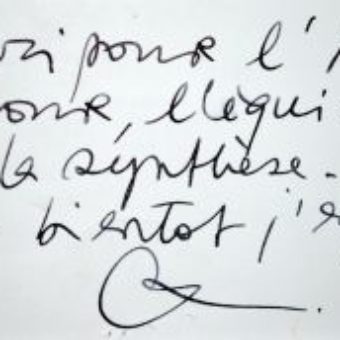 ci pour l'
our, l'équi
la synthèse.
bientot j'e